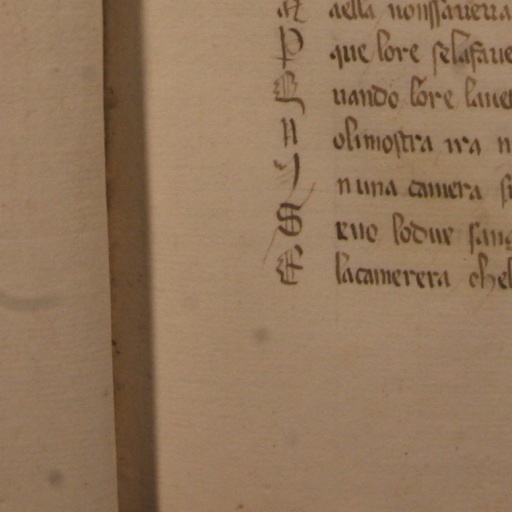 A aella nonssauerra
P que lore selasaue
Q uando lore laue
N olimostra ira n
I nuna camera s
S eue lodue sang
E lacamerera chel